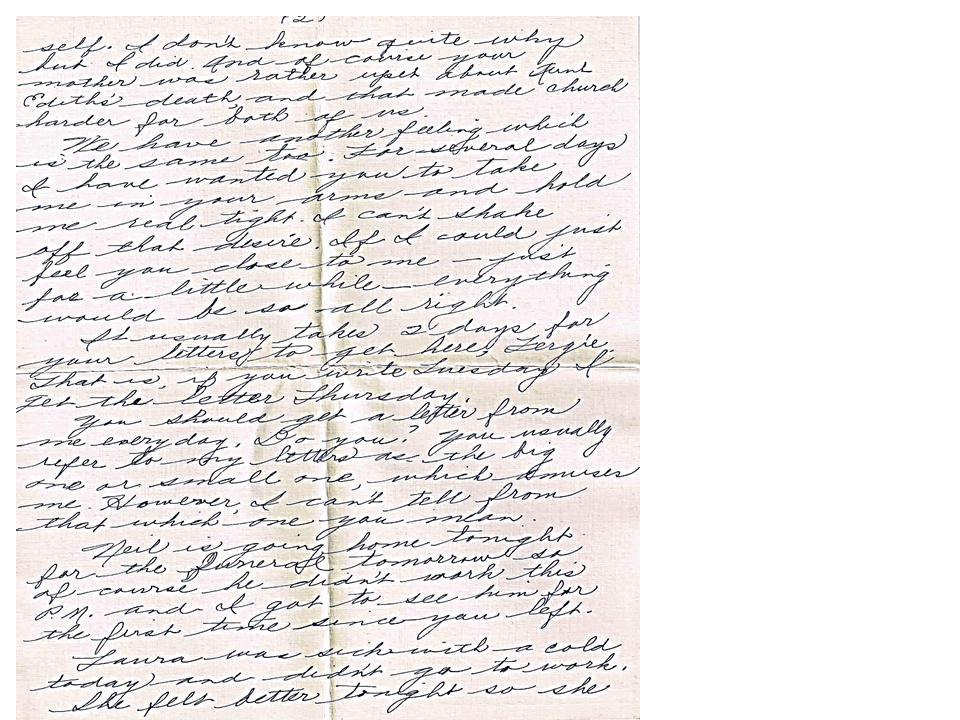 (2)
self. I don't know quite why
but I did. And of course your
mother was rather upset about Aunt
Edith's death, and that made church
harder for both of us.
We have another feeling which
is the same too. For several days
I have wanted you to take
me in your arms and hold
me real tight. I can't shake
off that desire. If I could just
feel you close to me – just
for a little while – everything
would be so all right.
It usually takes 2 days for
your letters to get here, Fergie,
That is, if you write Tuesday I
get the letter Thursday.
You should get a letter from
me everyday. Do you? You usually
refer to my letters as the big
one or small one, which amuses
me. However, I can't tell from
that which one you mean.
Neil is going home tonight
for the funeral tomorrow so
of course he didn't work this
P.M. and I got to see him for
the first time since you left.
Laura was sick with a cold
today and didn't go to work.
She felt better tonight so she